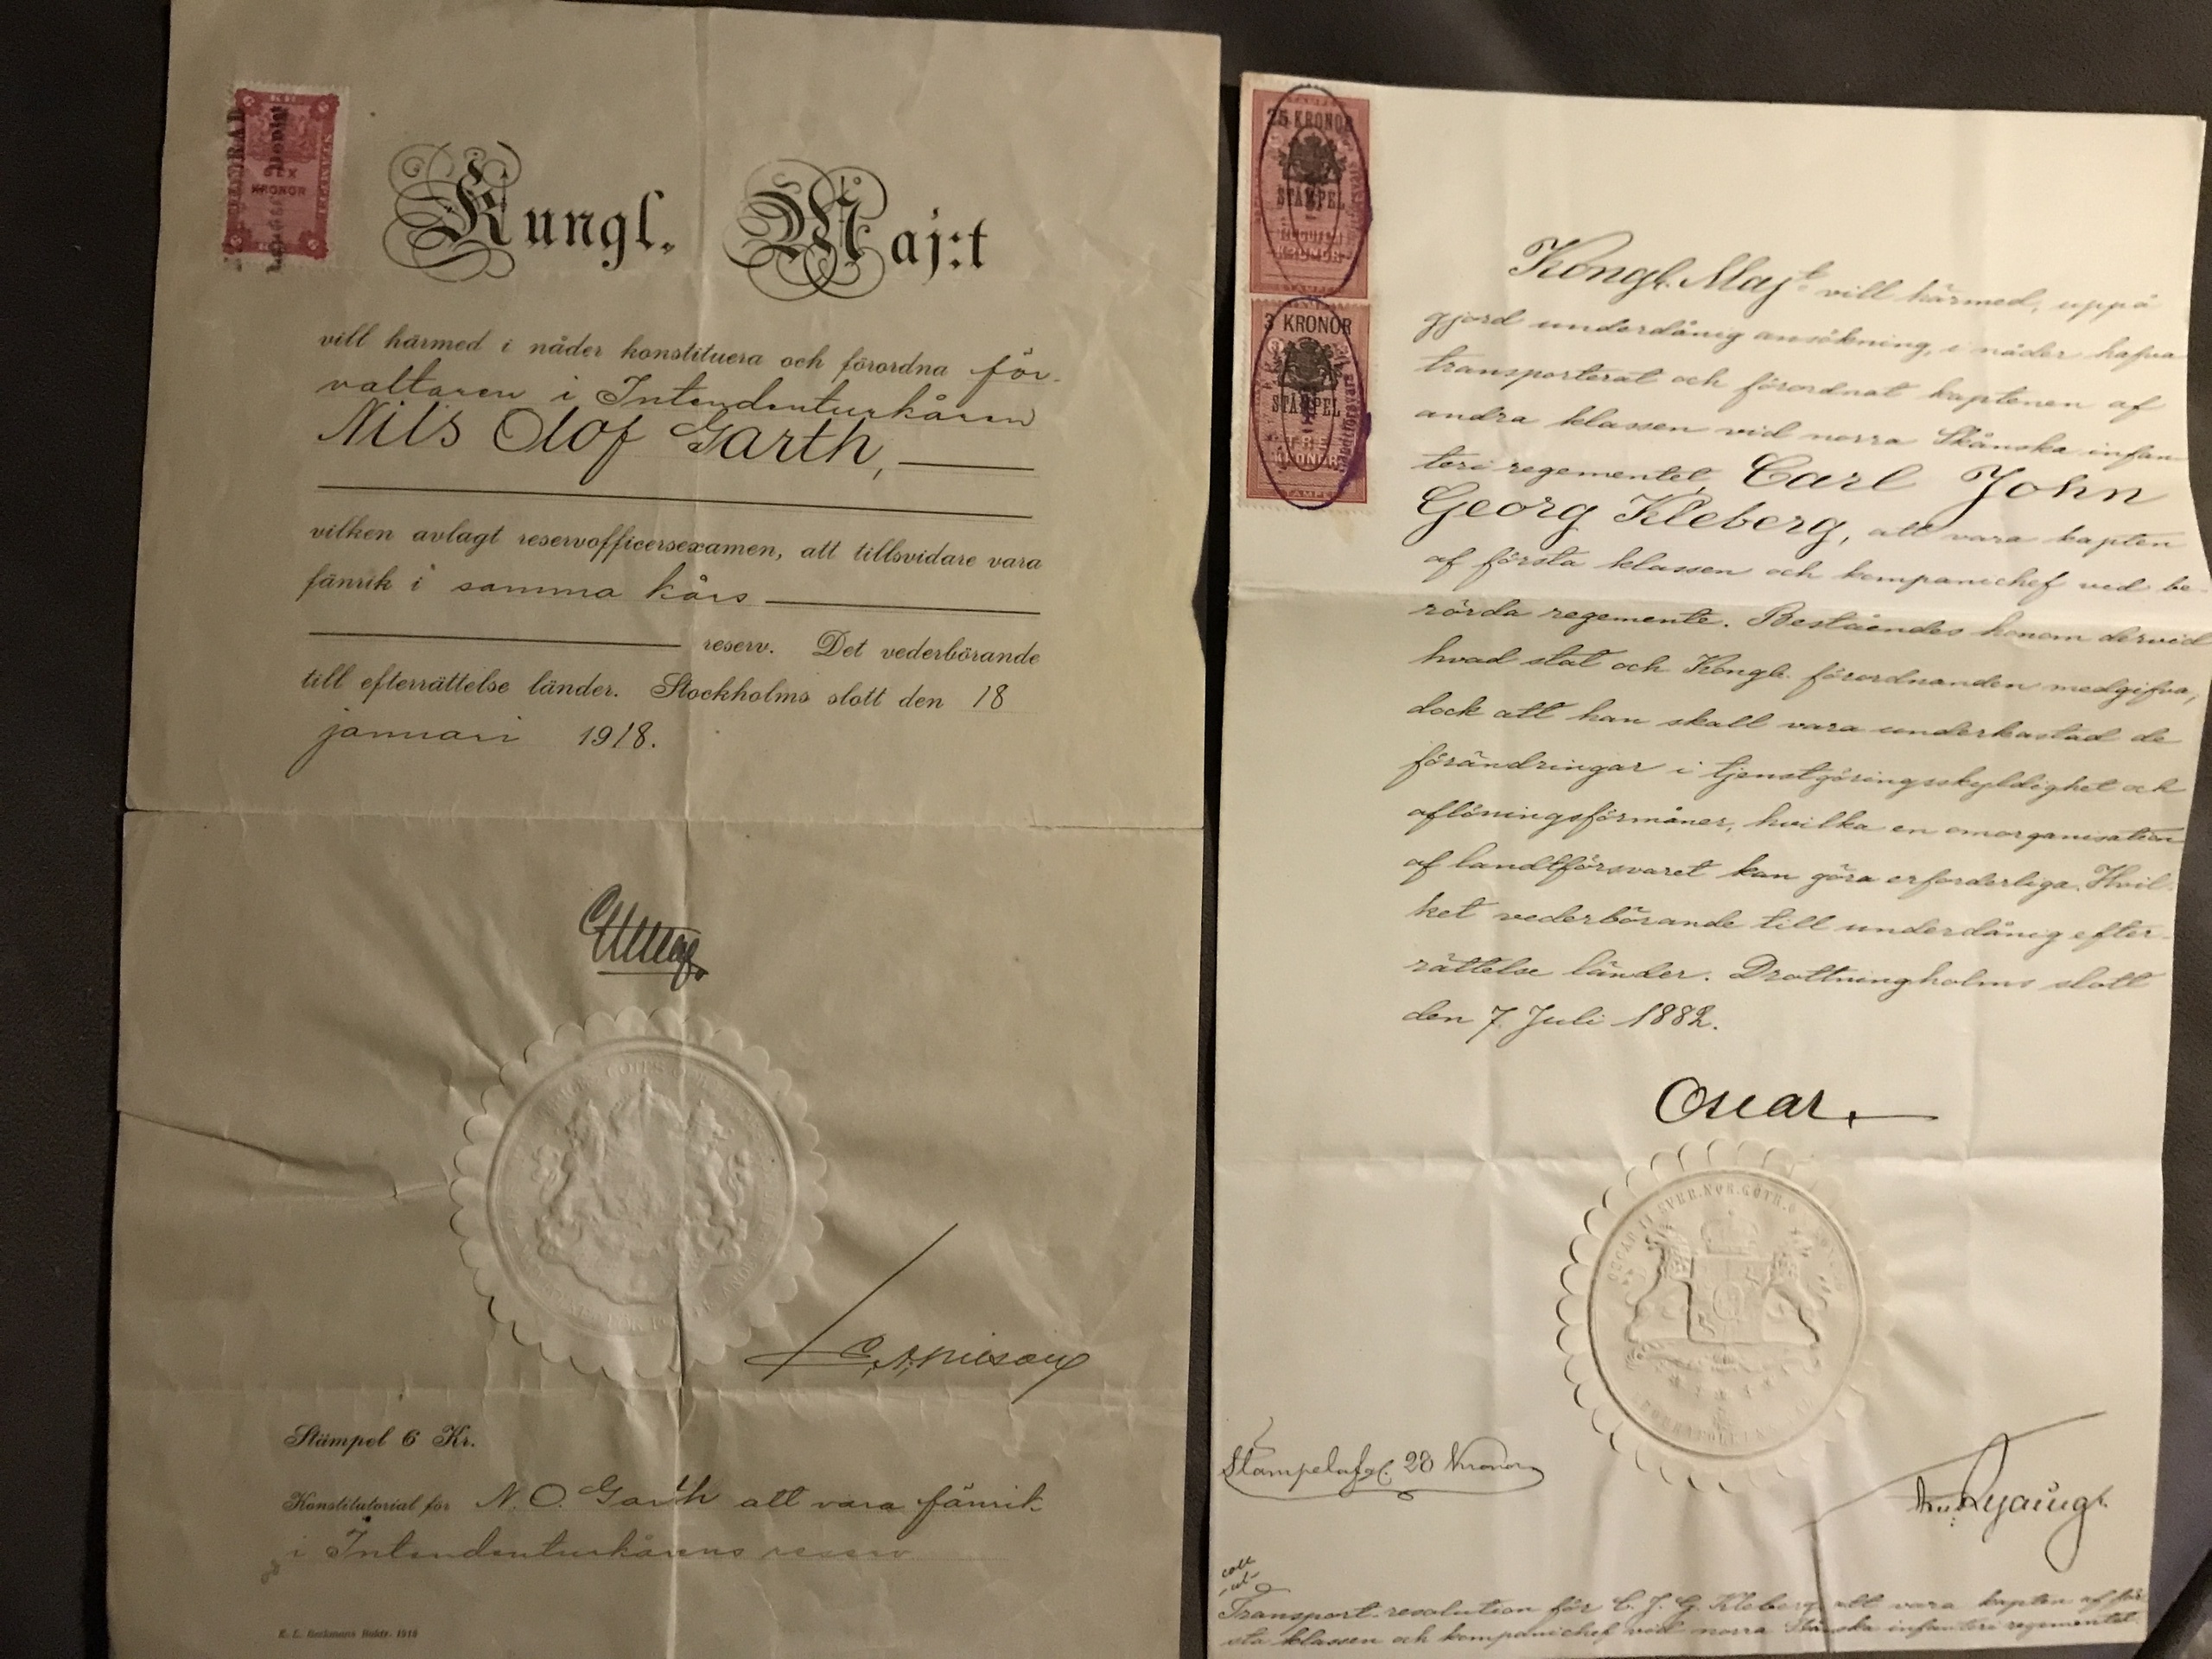 SEX
KRONOR
Kungl. Maj:t
vill härmed i nåder konstituera och förordna för-
valtaren i Intendenturkåren
Nils Olof Garth,
vilken avlagt reservofficersexamen, att tillsvidare vara
fänrik i samma kårs
reserv. Det vederbörande
till efterrättelse länder. Stockholms slott den 18
januari 1918.
Stämpel 6 Kr.
Konstitutorial för N. O. Garth att vara fänrik
i Intendenturkårens reserv
25 KRONOR
STÄMPEL
KRONOR
3 KRONOR
STÄMPEL
TRE
KRONOR
STÄMPEL
Kongl. Majt vill härmed, uppå
gjord underdånig ansökning, i nåder hafva
transporterat och förordnat kaptenen af
andra klassen vid norra Skånska infan-
teri regementet, Carl John
Georg Kleberg, att vara kapten
af första klassen och kompanichef vid be-
rörda regemente. Beståendes honom dervid
hvad stat och Kongl. förordnanden medgifva,
dock att han skall vara underkastad de
förändringar i tjenstgöringsskyldighet och
aflöningsförmåner, hvilka en omorganisation
af landtförsvaret kan göra erforderliga. Hvil-
ket vederbörande till underdånig efter-
rättelse länder. Drottningholms slott
den 7 Juli 1882.
Oscar.
OSCAR II SVER. NOR. GÖTH. O
Stämpelafgf. 28 Kronor
Transport-resolution för C. J. G. Kleberg att vara kapten af för-
sta klassen och kompanichef vid norra Skånska infanteri regementet.